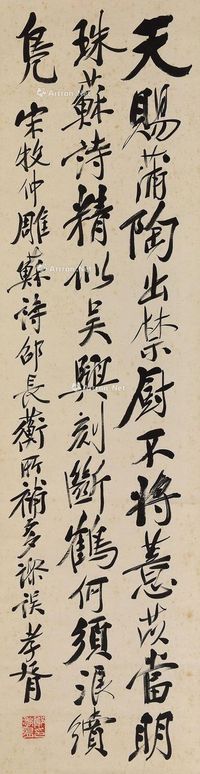 天賜蒲陶出禁厨不將薏苡當明
珠蘇詩精似吳興刻斷鶴何須浪續
鳧
宋牧仲雕蘇詩邵長蘅所補多謬誤孝胥